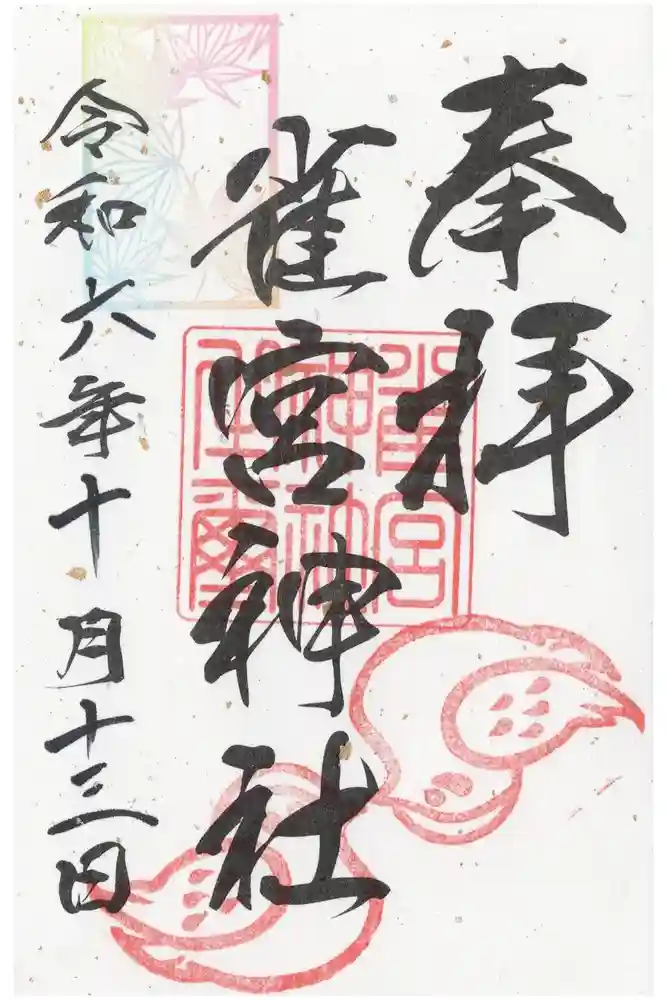 奉拝
雀宮神社
雀宮
神社
令和六年十月十三日